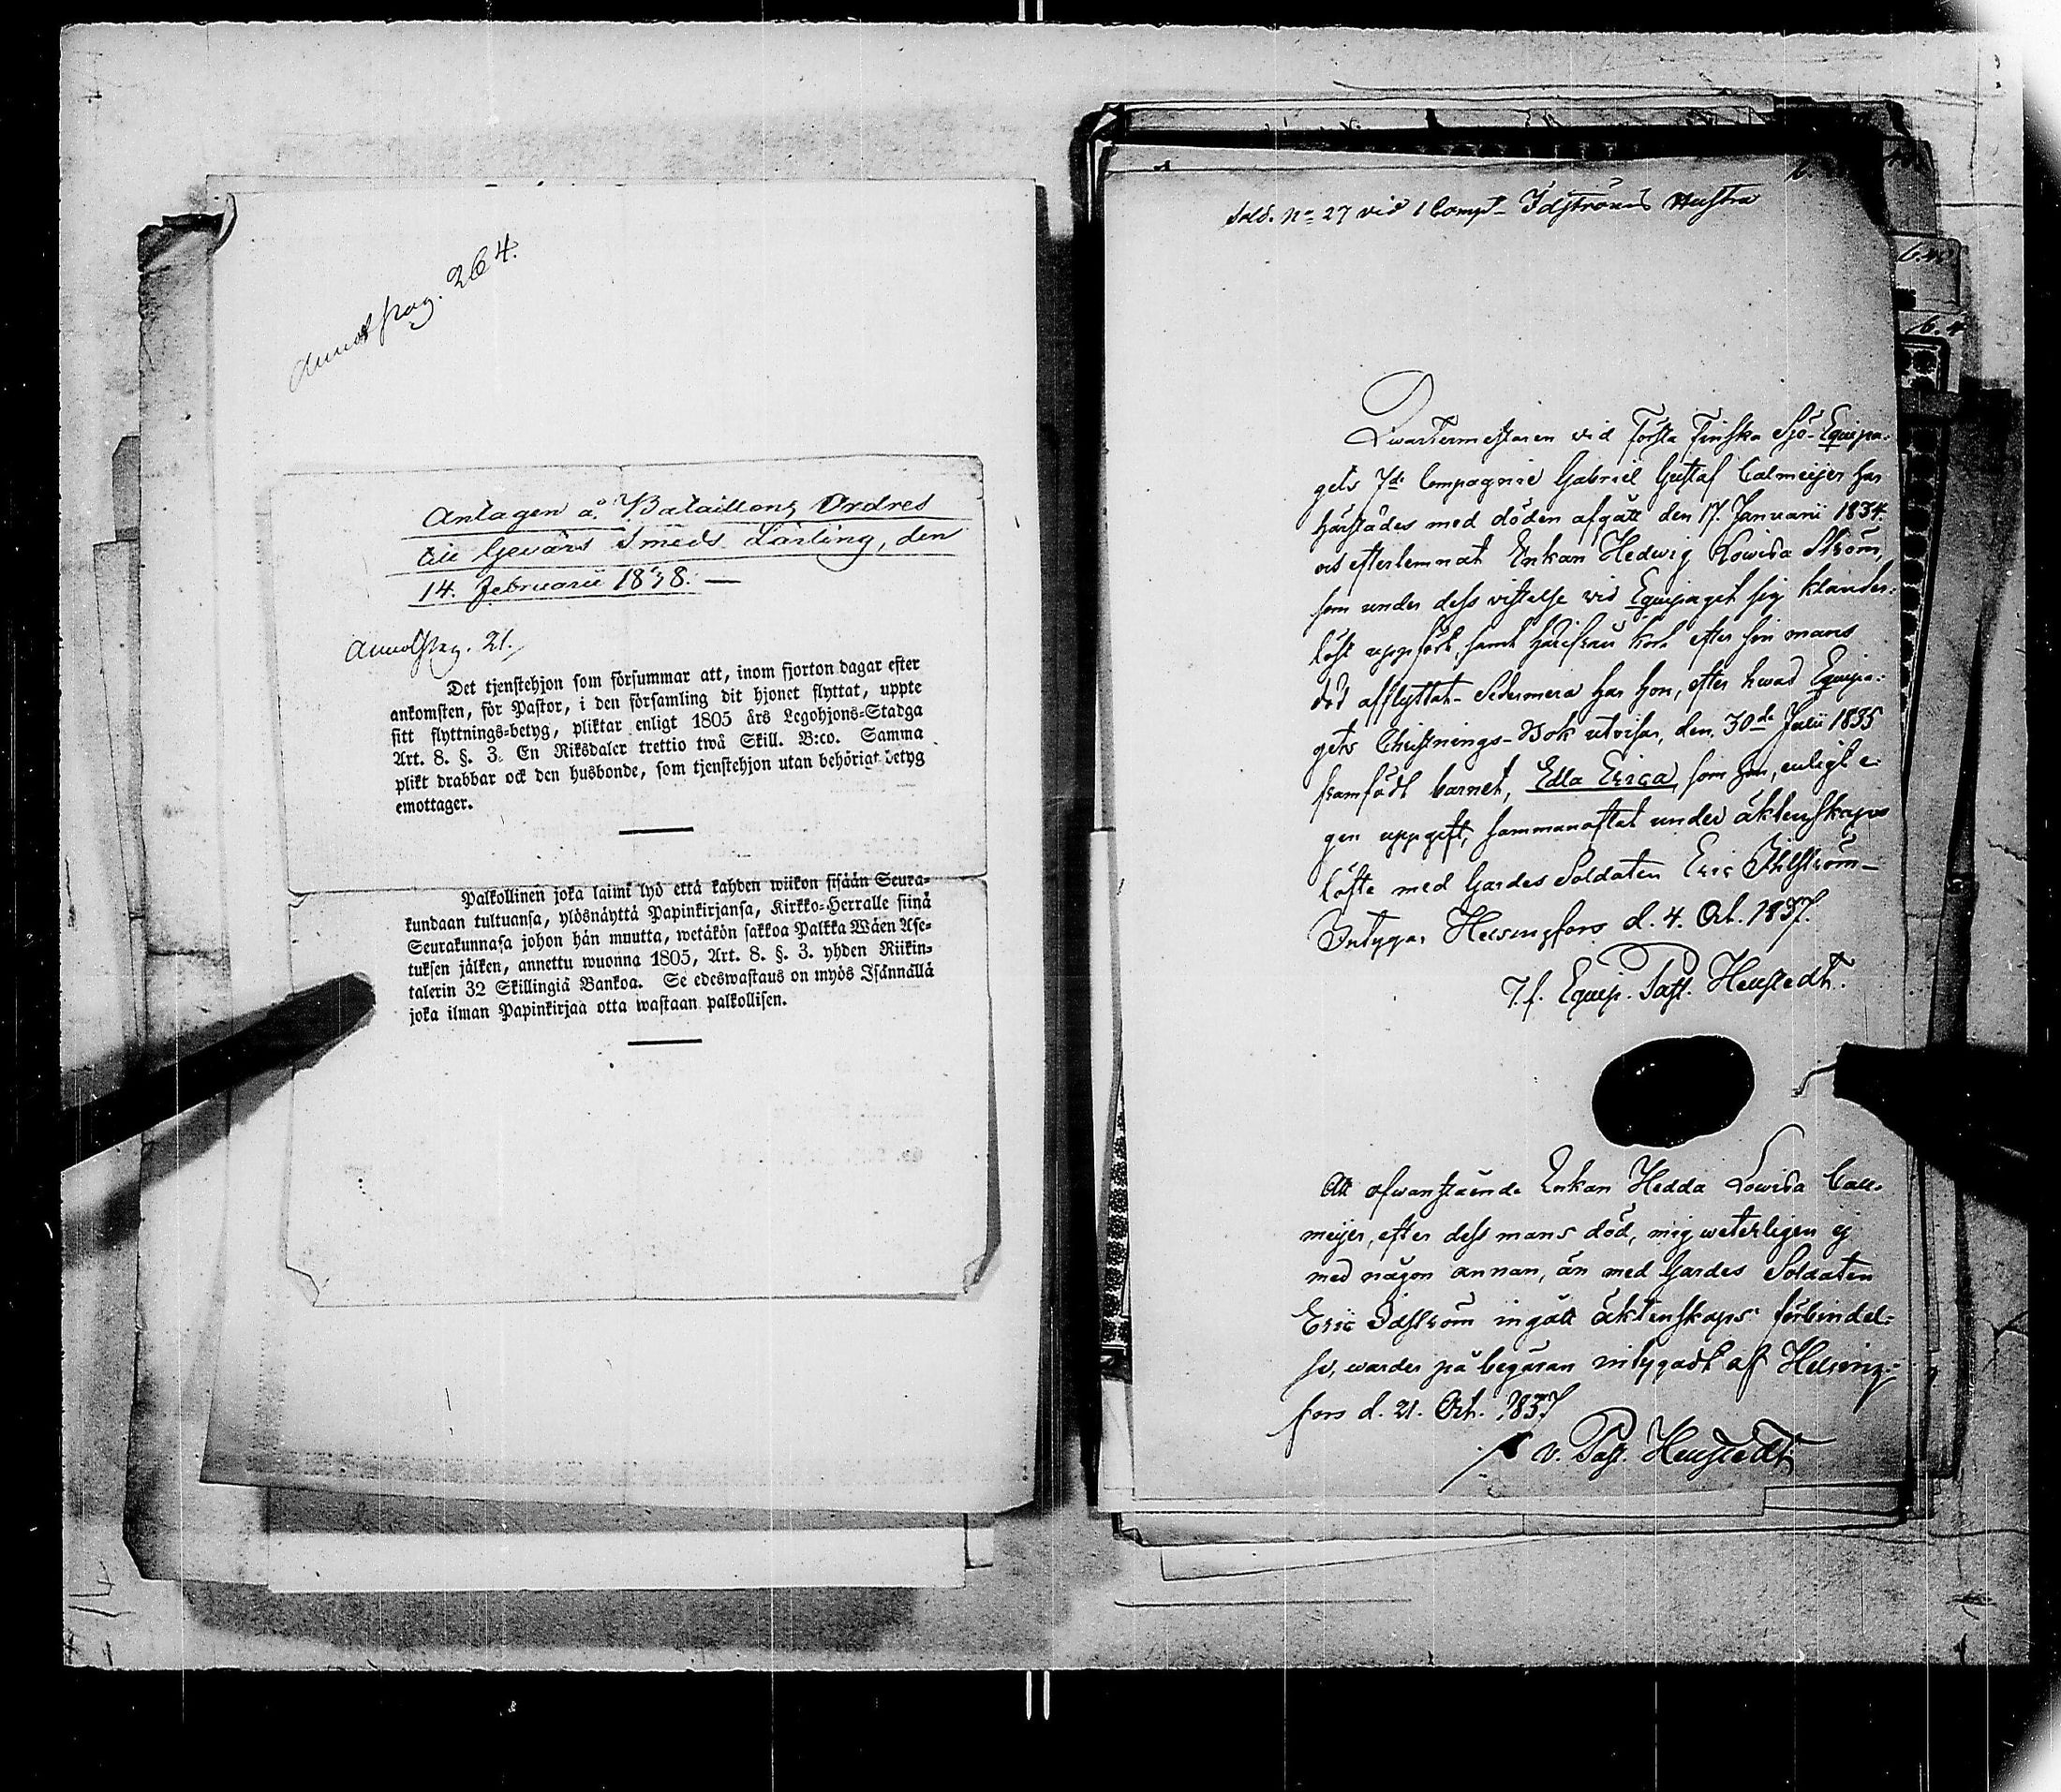 Annot. pag. 264.
Antagen å Bataillons Ordres
till Gevärs Smeds Lärling, den
14. Februarii 1838. —
Annot. pag. 21.
Det tjenstehjon som försummar att, inom fjorton dagar efter
ankomsten, för Pastor, i den församling dit hjonet flyttat, uppte
sitt flyttnings-betyg, pliktar enligt 1805 års Legohjons-Stadga
Art. 8. §. 3. En Riksdaler trettio twå Skill. B:co. Samma
plikt drabbar ock den husbonde, som tjenstehjon utan behörigt betyg
emottager.
Palkollinen joka laimi lyö että kahden wiikon sisään Seura-
kundaan tultuansa, ylösnäyttä Papinkirjansa, Kirkko-Herralle siinä
Seurakunnasa johon hän muutta, wetäkön sakkoa Palkka Wäen Ase-
tuksen jälken, annettu wuonna 1805, Art. 8. §. 3. yhden Riikin-
talerin 32 Skillingiä Bankoa. Se edeswastaus on myös Isännällä
joka ilman Papinkirjaa otta wastaan palkollisen.
Sold. No 27 vid 1 Comp. Idströms Hustru
Quartermästaren vid Första Finska Sjö-Equipa-
gets 7de Compagnie Gabriel Gustaf Calmeijer har
härstädes med döden afgått den 17. Januarii 1834.
och efterlemnat Enkan Hedwig Lowisa Ström,
som under dess vistelse vid Equipaget sig klander-
löst uppfört, samt härifrån kort efter sin mans
död afflyttat. Sedermera har hon, efter hwad Equipa-
gets Christnings-Bok utvisar, den 30de Julii 1835
framfödt barnet, Edla Erica, som hon, enligt e-
gen uppgift, sammanaflat under äktenskaps
löfte med Gardes Soldaten Eric Idström —
Intygar Helsingfors d. 4. Oct. 1837.
T.f. Equip. Past. Heustedt.
Att ofwanstående Enkan Hedda Lowisa Call-
meijer, efter dess mans död, mig weterligen ej
med någon annan, än med Gardes Soldaten
Eric Idström ingått äktenskaps förbindel-
se, warder på begäran intygadt af Helsing-
fors d. 21. Oct. 1837
v. Past. Heustedt